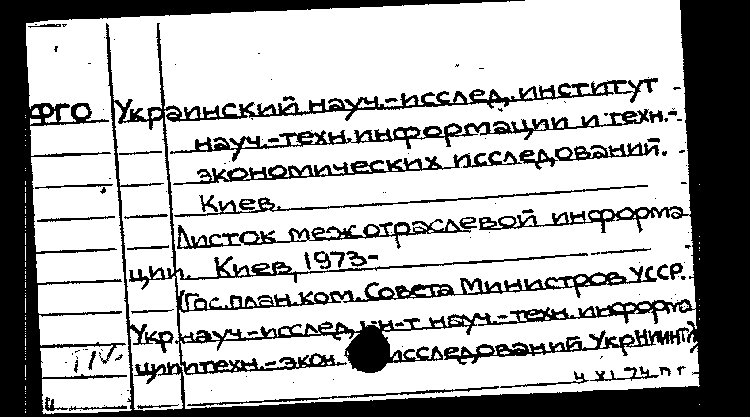 ФГО Украинский науч.-исслед. институт
науч.-техн. информации и техн.-
экономических исследований.
Киев.
Листок межотраслевой информа
ции. Киев, 1973-
(Гос. план. ком. Совета Министров УССР.
Укр. науч.-исслед. ин-т науч.-техн. информа
ции и техн.-экон. исследований. УкрНИИНТИ)
4 XI 74 п г